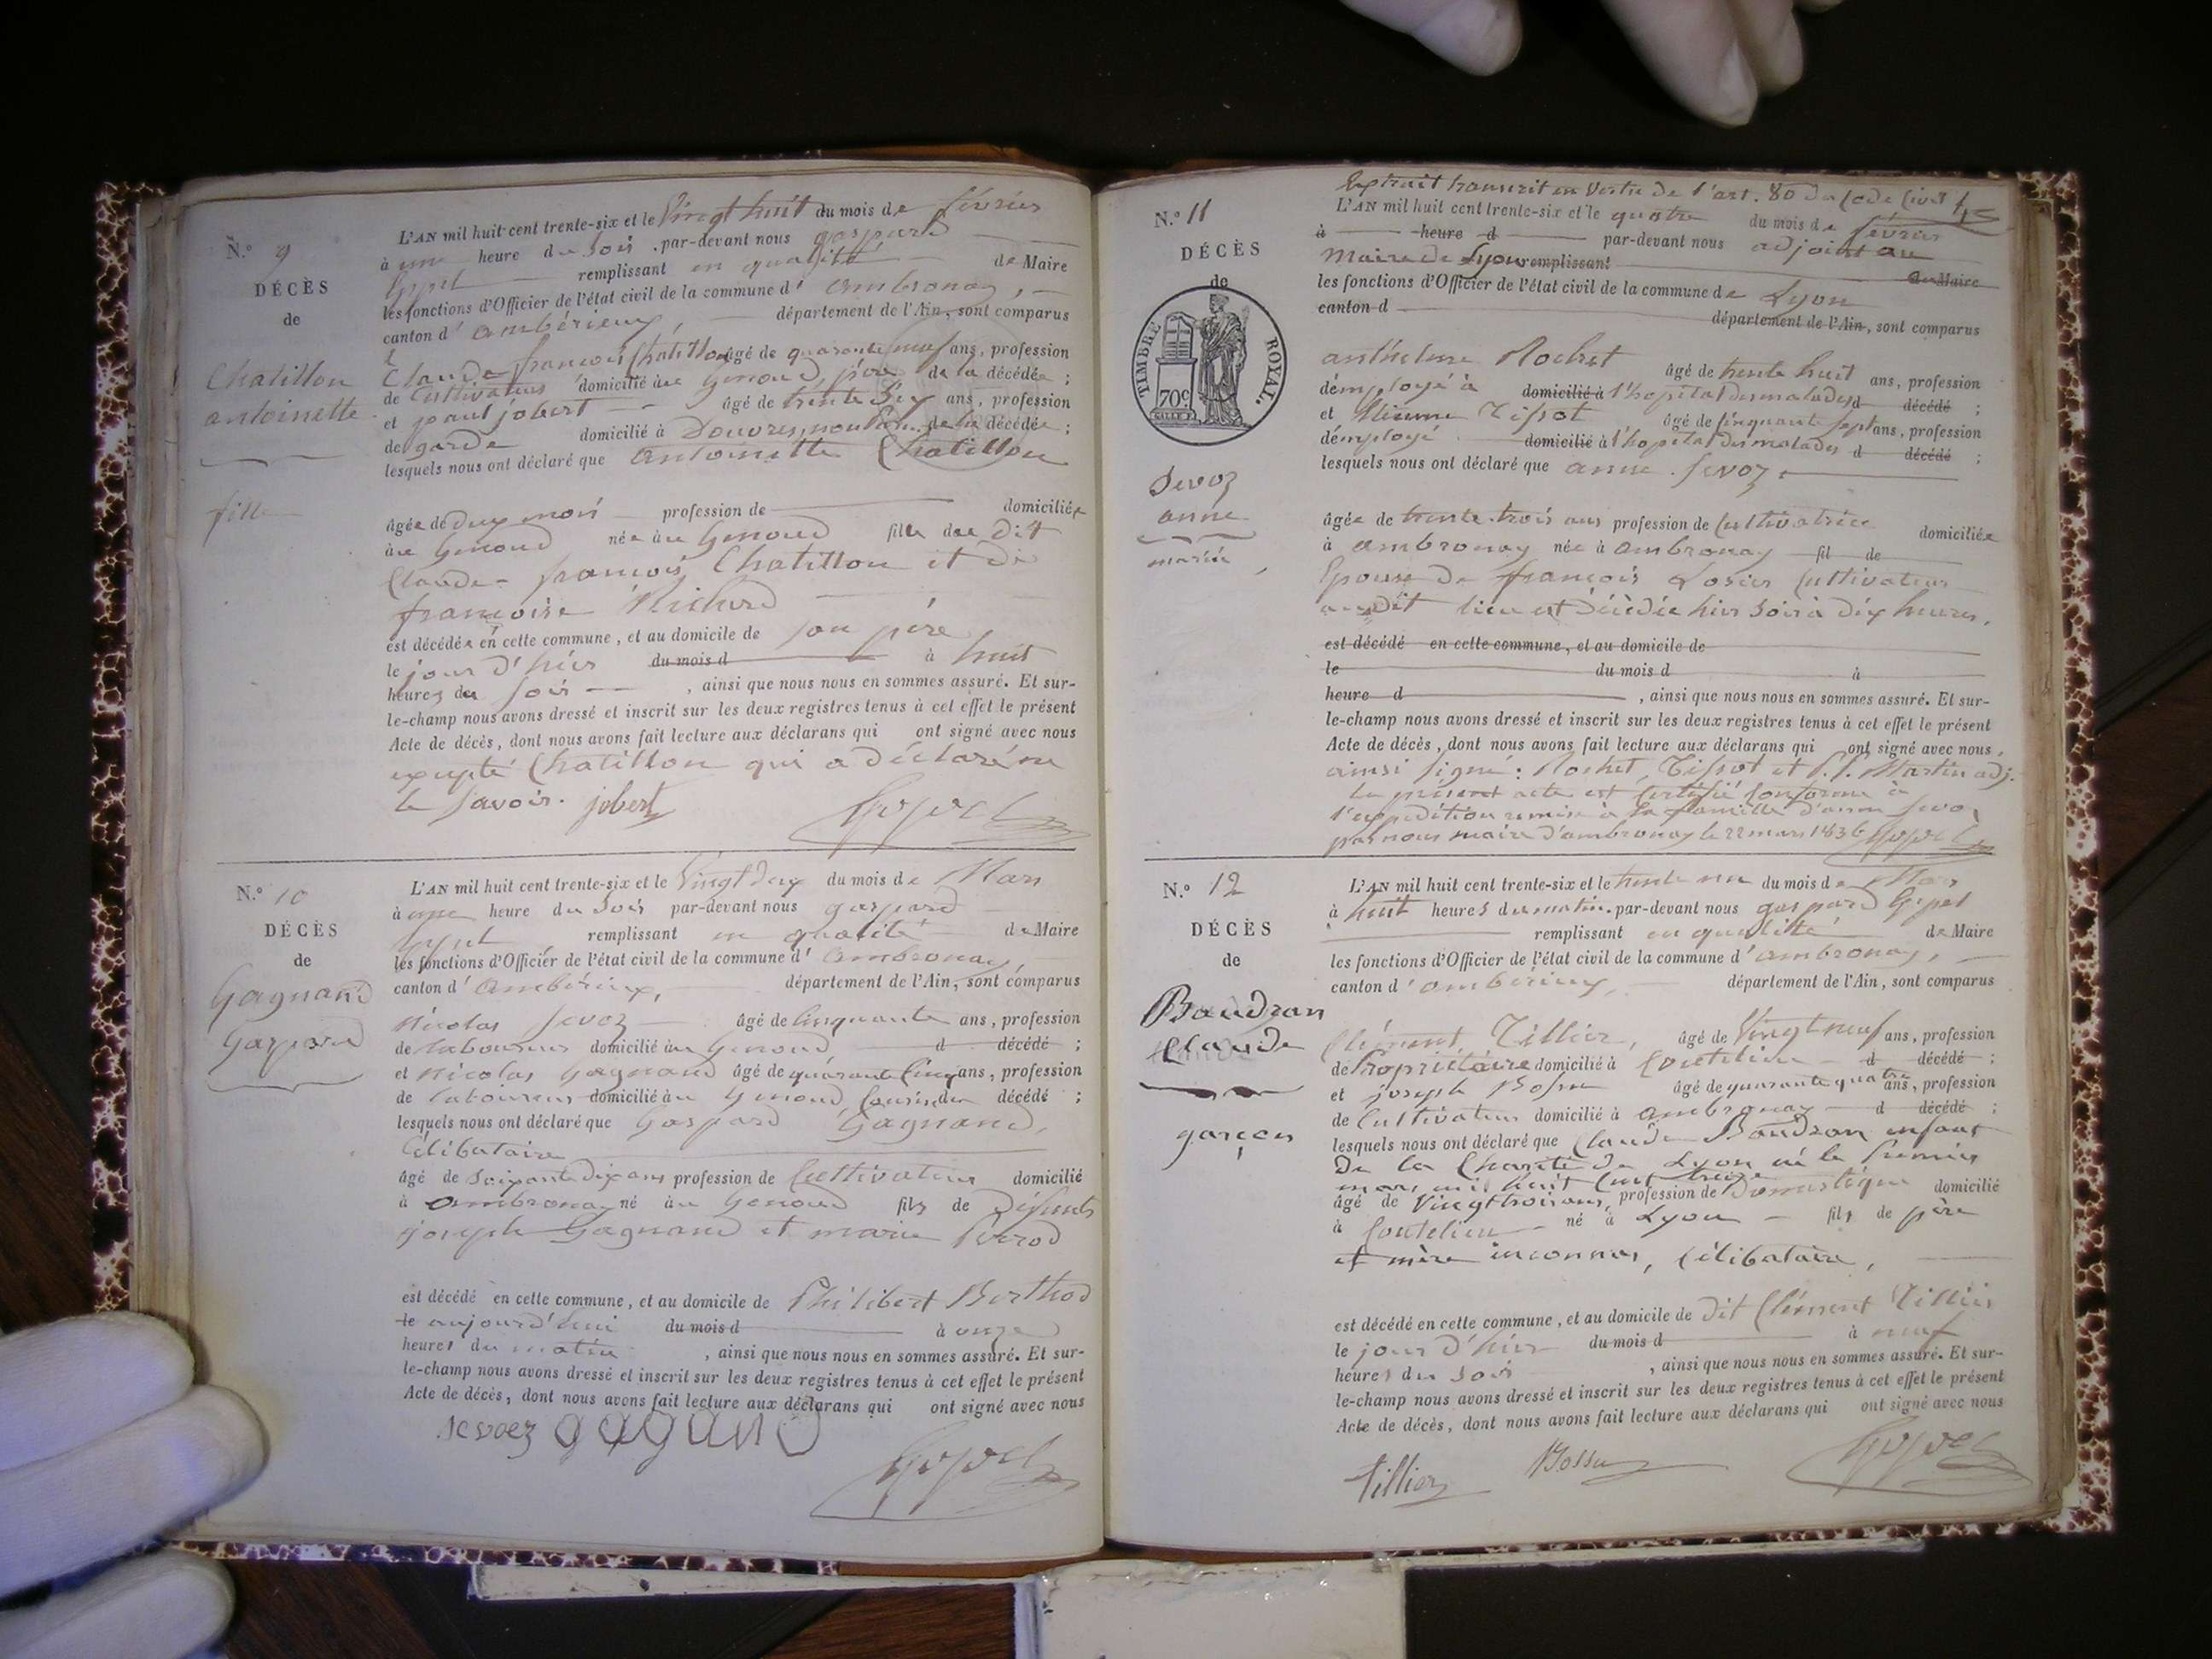 N.º 9
DÉCÈS
de
Chatillon
antoinette
fille
L'AN mil huit cent trente-six et le Vingt huit du mois de février
à une heure du soir par-devant nous gaspard
remplissant en qualité de Maire
les fonctions d'Officier de l'état civil de la commune d' ambronay,
canton d' ambérieux, département de l'Ain, sont comparus
Claude françois Chatillon âgé de quarante neuf ans, profession
de Cultivateur domicilié au Genoud père de la décédée ;
et paul jobert âgé de trente six ans, profession
de garde domicilié à Douvres, non de la décédée ;
lesquels nous ont déclaré que antoinette Chatillon
âgée de dux mois profession de domiciliée
au Genoud née au Genoud fille du dit
Claude françois Chatillon et de
françoise Richerd
est décédée en cette commune, et au domicile de son père
le jour d'hier du mois d à huit
heures du soir, ainsi que nous nous en sommes assuré. Et sur-
le-champ nous avons dressé et inscrit sur les deux registres tenus à cet effet le présent
Acte de décès, dont nous avons fait lecture aux déclarans qui ont signé avec nous
excepté Chatillon qui a déclaré ne
le savoir. jobert
N.º 10
DÉCÈS
de
Gagnand
Gaspard
L'AN mil huit cent trente-six et le Vingt deux du mois de Mars
à une heure du soir par-devant nous gaspard
remplissant en qualité de Maire
les fonctions d'Officier de l'état civil de la commune d' ambronay,
canton d' ambérieux, département de l'Ain, sont comparus
Nicolas Sevoz âgé de Cinquante ans, profession
de laboureur domicilié au Genoud d décédé ;
et Nicolas Gagnand âgé de quarante Cinq ans, profession
de laboureur domicilié au Genoud, Cousin du décédé ;
lesquels nous ont déclaré que Gaspard Gagnand,
Célibataire
âgé de soixante dix ans profession de Cultivateur domicilié
à ambronay né au Genoud fils de Défunts
joseph Gagnand et marie
est décédé en cette commune, et au domicile de Philibert Berthod
le aujourd'hui du mois d à onze
heures du matin, ainsi que nous nous en sommes assuré. Et sur-
le-champ nous avons dressé et inscrit sur les deux registres tenus à cet effet le présent
Acte de décès, dont nous avons fait lecture aux déclarans qui ont signé avec nous
sevoez gagand
N.º 11
DÉCÈS
de
TIMBRE ROYAL.
70c
Sevoz
anne
mariée
Extrait transcrit en vertu de l'art. 80 du Code Civil
L'AN mil huit cent trente-six et le quatre du mois de février
à heure d par-devant nous adjoint au
Maire de Lyon remplissant de Maire
les fonctions d'Officier de l'état civil de la commune de Lyon
canton d département de l'Ain, sont comparus
anthelme Rochet âgé de trente huit ans, profession
d'employé à domicilié à l'hopital des malades d décédé ;
et Etienne Tissot âgé de Cinquante sept ans, profession
d'employé domicilié à l'hopital des malades d décédé ;
lesquels nous ont déclaré que anne Sevoz
âgée de trente trois ans profession de Cultivatrice domiciliée
à ambronay née à ambronay fil de
Epouse de françois Losier Cultivateur
audit lieu est décédée hier soir à dix heures,
est décédé en cette commune, et au domicile de
le du mois d à
heure d, ainsi que nous nous en sommes assuré. Et sur-
le-champ nous avons dressé et inscrit sur les deux registres tenus à cet effet le présent
Acte de décès, dont nous avons fait lecture aux déclarans qui ont signé avec nous,
ainsi signé : Rochet, Tissot et Martin adj.
Le présent acte est certifié conforme à
l'expédition remise à la famille d'anne Sevoz
par nous maire d'ambronay le 22 mars 1836
N.º 12
DÉCÈS
de
Baudran
Claude
garçon
L'AN mil huit cent trente-six et le trente un du mois de Mars
à huit heures du matin par-devant nous gaspard
remplissant en qualité de Maire
les fonctions d'Officier de l'état civil de la commune d' ambronay,
canton d' ambérieux, département de l'Ain, sont comparus
Clément Tillier, âgé de Vingt neuf ans, profession
de Propriétaire domicilié à Coutelieu d décédé ;
et joseph Bossu âgé de quarante quatre ans, profession
de Cultivateur domicilié à ambronay d décédé ;
lesquels nous ont déclaré que Claude Baudran enfant
de la Charité de Lyon né le premier
mars mil huit cent treize
âgé de Vingt trois ans, profession de Domestique domicilié
à Coutelieu né à Lyon fils de père
et mère inconnus, Célibataire,
est décédé en cette commune, et au domicile de dit Clément Tillier
le jour d'hier du mois d à neuf
heures du soir, ainsi que nous nous en sommes assuré. Et sur-
le-champ nous avons dressé et inscrit sur les deux registres tenus à cet effet le présent
Acte de décès, dont nous avons fait lecture aux déclarans qui ont signé avec nous
Tillier Bossu